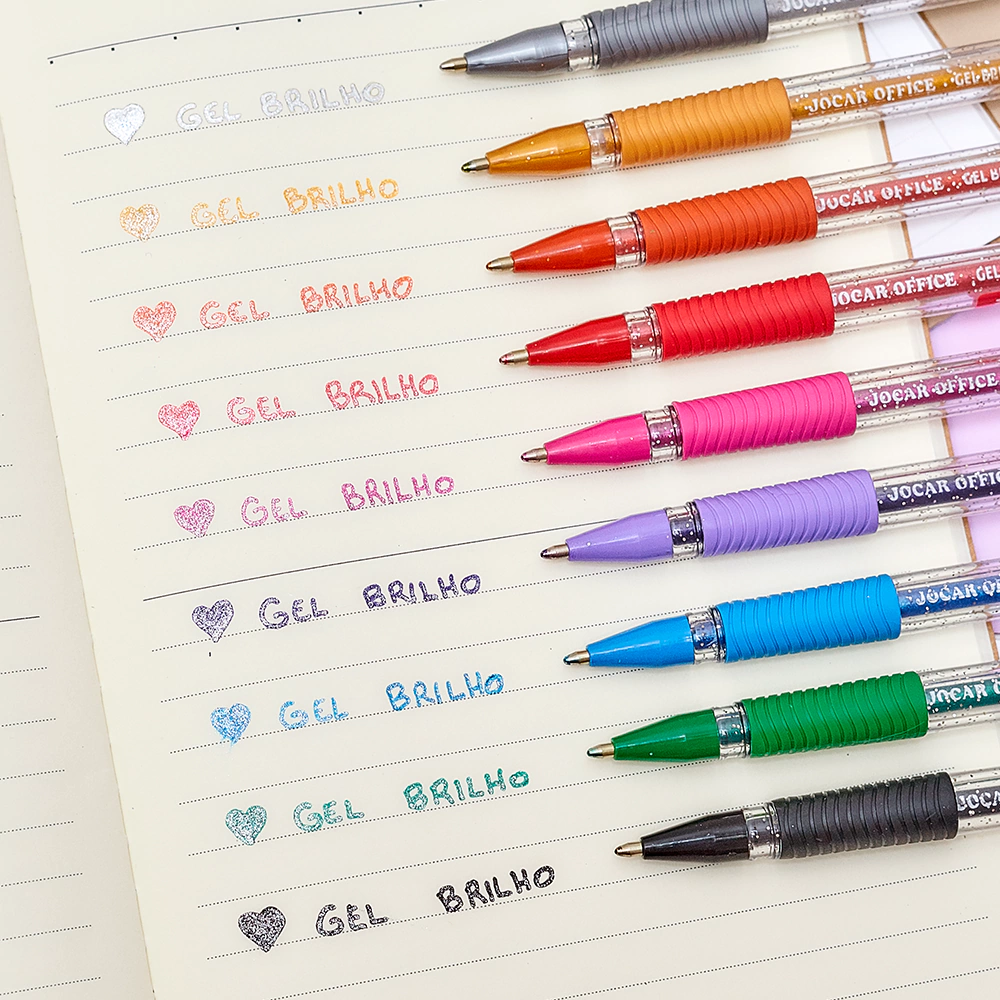 JOCAR OFFICE
GEL BRILHO
JOCAR OFFICE · GEL BRI
GEL BRILHO
JOCAR OFFICE · GEL B
GEL BRILHO
JOCAR OFFICE · GEL
GEL BRILHO
JOCAR OFFICE
GEL BRILHO
JOCAR OFFIC
GEL BRILHO
JOCAR OF
GEL BRILHO
JOCAR O
GEL BRILHO
JOCA
GEL BRILHO